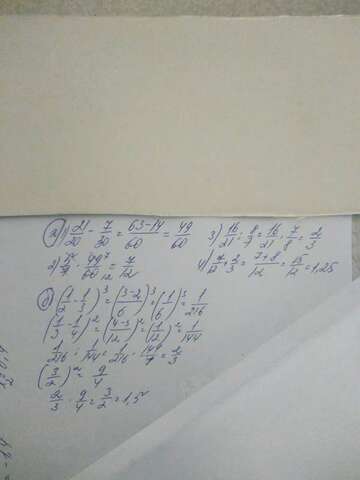 а) 1) 21/20 - 7/30 = 63-14/60 = 49/60 3) 16/21 : 8/7 = 16/21 · 7/8 = 2/3
2) 5/7 · 49⁷/60₁₂ = 7/12 4) 7/12 + 2/3 = 7+8/12 = 15/12 = 1,25
б) (1/2 - 1/3)³ = (3-2/6)³ = (1/6)³ = 1/216
(1/3 - 1/4)² = (4-3/12)² = (1/12)² = 1/144
1/216 : 1/144 = 1/216 · 144/1 = 2/3
(3/2)² = 9/4
2/3 · 9/4 = 3/2 = 1,5